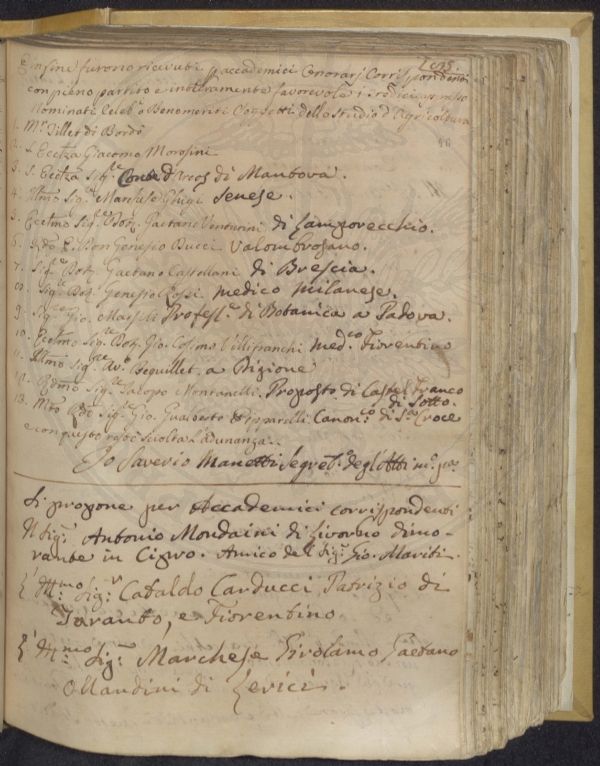 E infine furono ricevuti p accademici Onorarj Corrispondenti
con pieno partito e interamente favorevole i tredici appresso
Nominati Celebri e Benemeriti Soggetti dello Studio d'Agricoltura
1. Mr. Tillet di Bordò
2. S. Eccza Giacomo Morosini
3. S. Eccza Sigr. Conte d'Arco di Mantova.
4. Illmo Sigr. Marchese Ghigi Senese.
5. Eccmo Sigr. Dotr. Gaetano Venturini di Lamporecchio.
6. D. Bon Genesio Bucci Valombrosano.
7. Sigr. Dotr. Gaetano Castellani di Brescia.
8. Sigr. Dotr. Genesio Rossi medico milanese.
9. Sigr. Gio. Marsili Profess.e di Botanica a Padova.
10. Eccmo Sigr. Dotr. Gio. Cosimo Villifranchi Med.co Fiorentino
11. Illmo Sigr. Av.o Beguillet a Digione
12. Rdmo Sigr. Jacopo Montanelli. Proposto di Castel Franco
di Sotto.
13. Mto Rdo Sigr. Gio. Gualberto Canon.co di S.ta Croce
e con questo restò sciolta l'adunanza..
Io Saverio Manetti Segret.o degl'Atti m.o pa.
Si propone per Accademici corrispondenti
Il Sig.r Antonio Mondaini di Livorno dimo-
rante in Cipro. Amico del Sig.r Gio. Mariti.
L'Ill.mo Sig.r Cataldo Carducci Patrizio di
Taranto, e Fiorentino
L'Ill.mo Sig.r Marchese Girolamo Gaetano
Ollandini di Lerici.